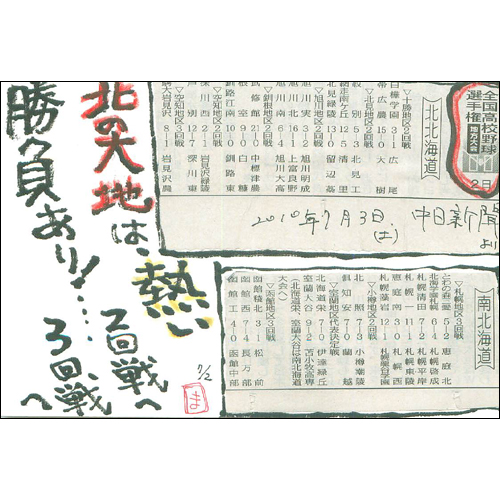 全国高校野球
選手権 地方大会
2日
【北北海道】
▽十勝地区2回戦
白樺学園 3―1 広尾
帯広農 15―0 大樹
▽北見地区2回戦
紋別 5―3 北見工
網走南ケ丘 12―5 清里
北見緑陵 10―3 留辺蘂
▽旭川地区2回戦
旭川実 13―2 旭川明成
旭川北 4―1 上富良野
旭川南 4―1 旭川大高
▽釧根地区2回戦
武修館 21―0 中標津農
根室 9―0 白糠
釧路江南 10―0 釧路東
▽空知地区2回戦
深川西 2―1 岩見沢緑陵
芦別 12―7 深川東
▽空知地区3回戦
岩見沢農
2010年7月3日(土) 中日新聞より
【南北海道】
▽札幌地区3回戦
とわの森三愛 6―5 恵庭北
北海道札幌
札幌清田 7―6 札幌平岸
恵庭南 4―3 札幌西
札幌藻岩 12―11 札幌東陵
▽小樽地区2回戦
北照 7―3 小樽桜陽
倶知安 7―1 蘭越
▽室蘭地区代表決定戦
北海道栄 7―6 伊達緑丘
室蘭大谷 9―2 苫小牧高専
(北海道栄、室蘭大谷は南北海道大会へ)
▽函館地区3回戦
函館稜北 3―1 松前
函館西 7―4 長万部
函館工 4―0 函館中部
北の大地は
熱い
勝負あり!…
2回戦へ
3回戦へ
7/2
ま